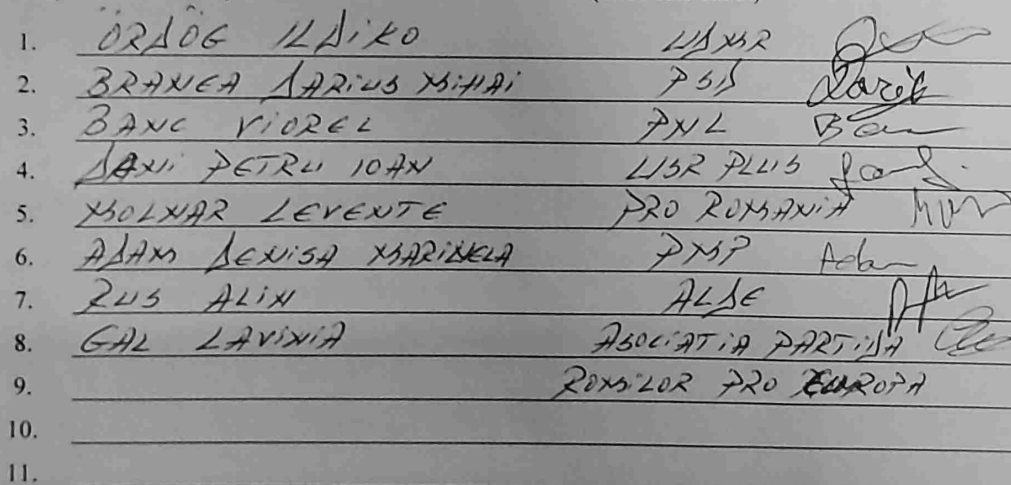 1. ÖRDÖG ILDIKO UDMR
2. BRANEA DARIUS MIHAI PSD Darius
3. BANC VIOREL PNL Ban
4. DANI PETRU IOAN USR PLUS
5. MOLNAR LEVENTE PRO ROMANIA
6. ADAM DENISA MARINELA PMP Adam
7. RUS ALIN ALDE
8. GAL LAVINIA ASOCIATIA PARTIDA
9. ROMILOR PRO EUROPA
10.
11.